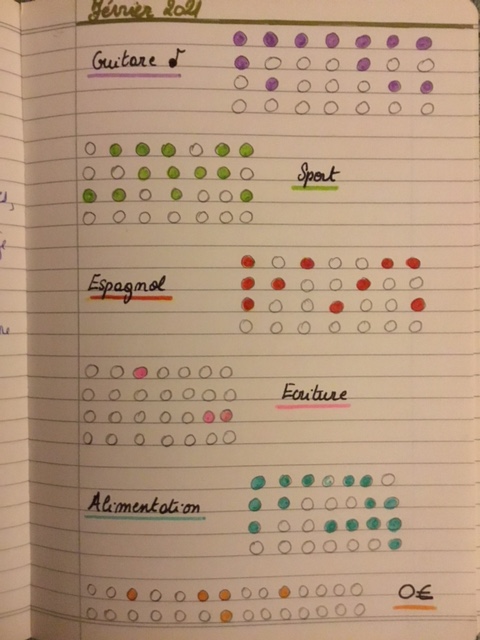 Février 2021
Guitare
Sport
Espagnol
Ecriture
Alimentation
0€